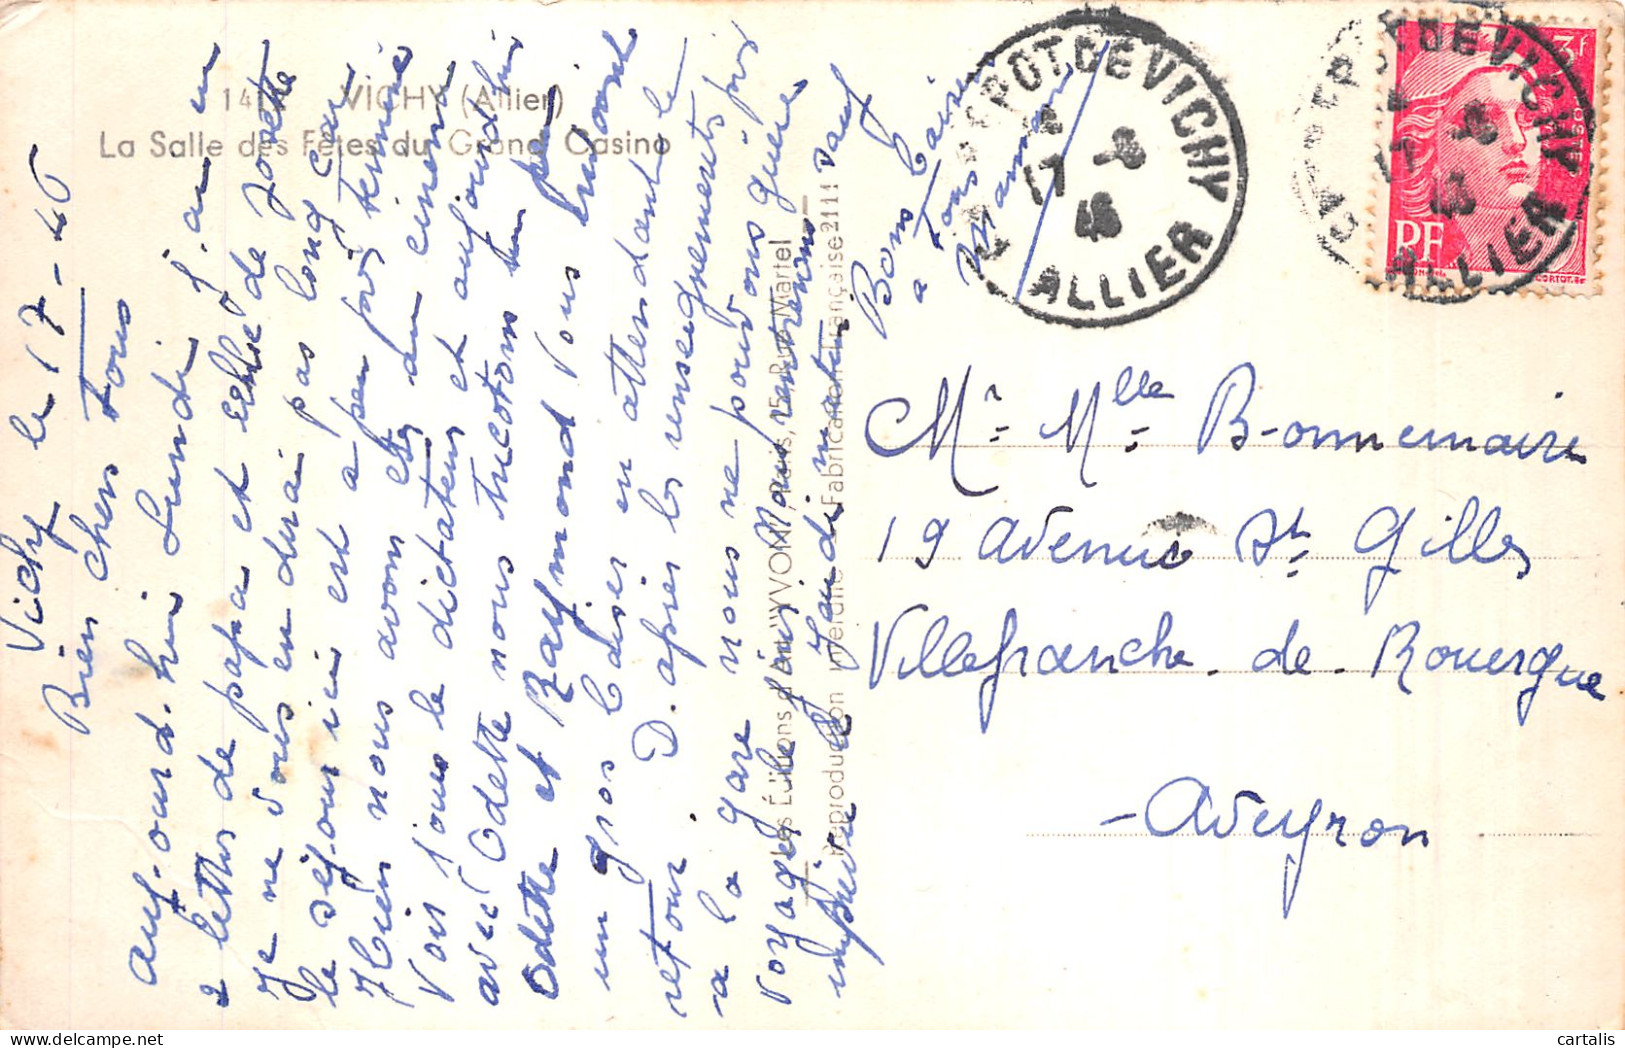 14 VICHY (Allier)
La Salle des Fêtes du Grand Casino
Vichy le 17-46
Bien chers tous
auj-ourd-hui Lundi j-ai eu
2 lettres de papa et celle de Josette
Je ne vous en dirai pas long car
le séjour ici est a peu près terminé
Hier nous avons été au cinema
Voir jouer le dictateur et aujourd'hui
avec Odette nous tricotons un peu
Odette et Raymond vous envoient
un gros baiser en attendant le
retour. D-après les renseignements pris
a la gare nous ne pouvons guère
voyager le jour Nous rentrerons
Jeudi matin sauf
imprévu
Bons baisers
a tous
Maman
Les Editions d'Art "YVON", Paris, 15, Rue Martel
Reproduction interdite Fabrication Française 2111
ENTREPOT DE VICHY
17 -8
46
ALLIER
3f
POSTES
RF
CORTOT.SC
ENTREPOT DE VICHY
17 -8
46
ALLIER
Mr Mlle Bonnemaire
19 Avenue St Gilles
Villefranche-de-Rouergue
-Aveyron
cartalis